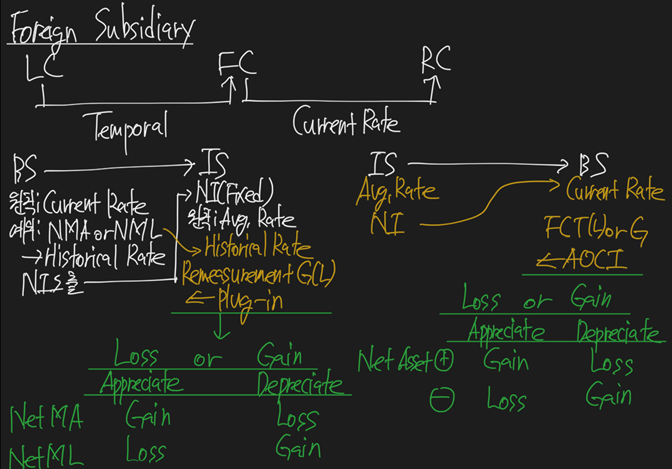 Foreign Subsidiary
LC FC RC
Temporal Current Rate
BS IS
원칙: Current Rate
예외: NMA or NML
→ Historical Rate
NI도출
NI(Fixed)
원칙: Avg. Rate
Historical Rate
Remeasurement G(L)
← Plug-in
Loss or Gain
Appreciate Depreciate
Net MA Gain Loss
Net ML Loss Gain
IS BS
Avg. Rate Current Rate
NI
FCT(L) or G
← AOCI
Loss or Gain
Appreciate Depreciate
Net Asset ⊕ Gain Loss
⊖ Loss Gain